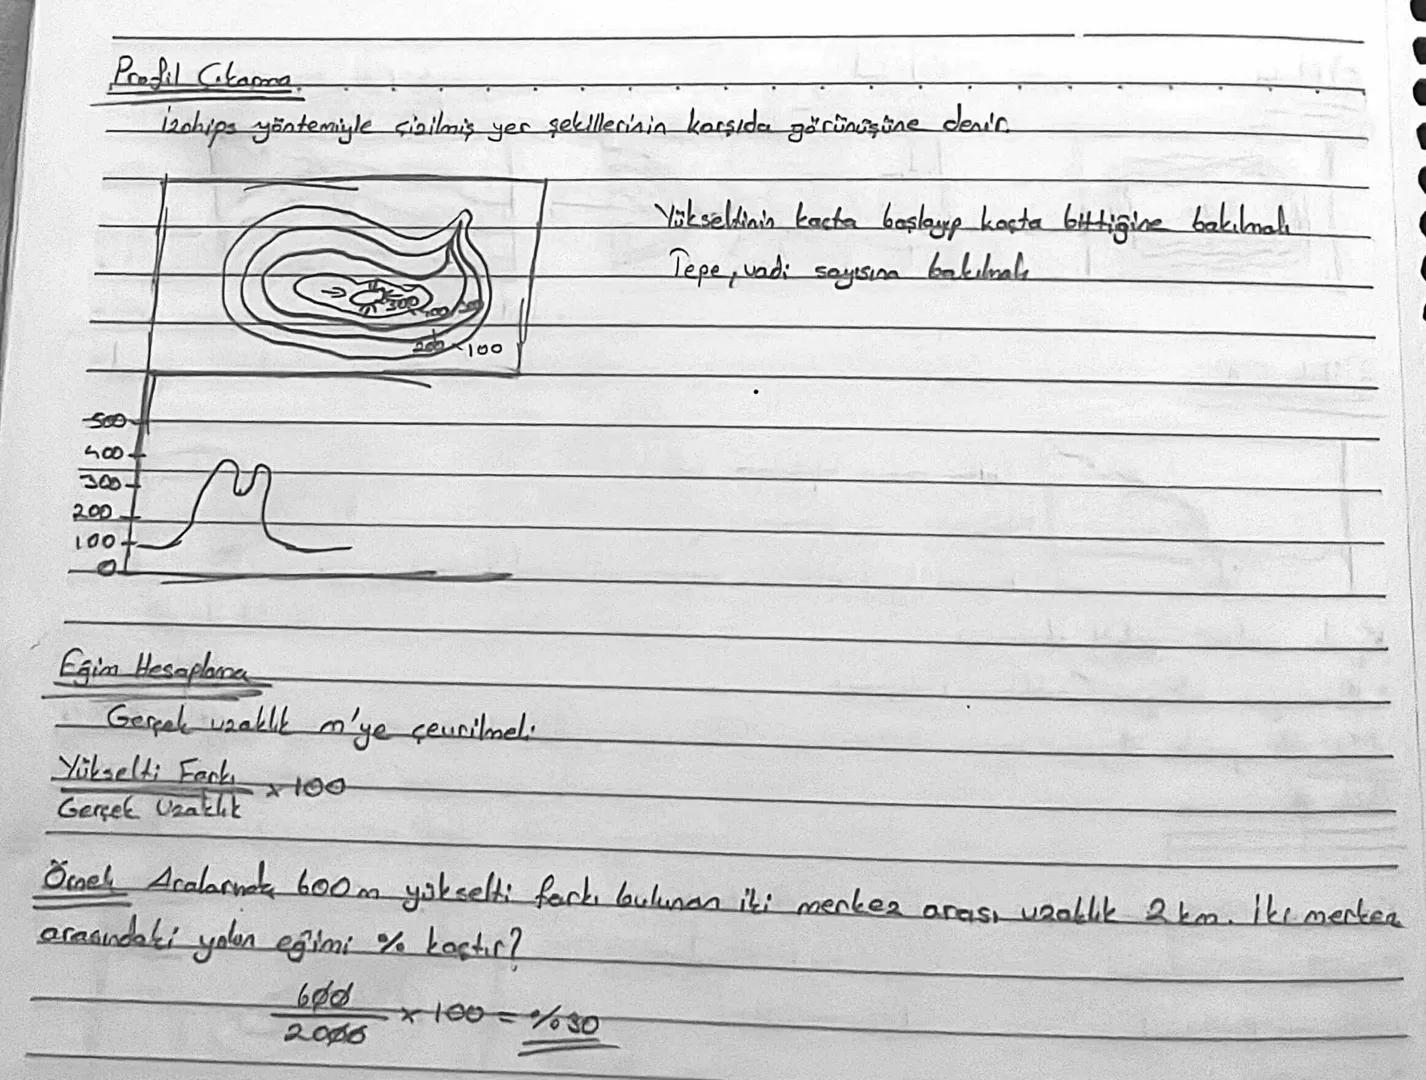 Profil Çıkarma
İzohips yöntemiyle çizilmiş yer şekillerinin karşıda görünüşüne denir.
Yükseltinin kaçta başlayıp kaçta bittiğine bakılmalı
Tepe, vadi sayısına bakılmalı
300
400
200
100
500
400
300
200
100
0
Eğim Hesaplama
Gerçek uzaklık m'ye çevrilmeli
Yükselti Farkı
x 100
Gerçek Uzaklık
Örnek Aralarında 600 m yükselti farkı bulunan iki merkez arası uzaklık 2 km. İki merkez
arasındaki yolun eğimi % kaçtır?
600
x 100 = %30
2000